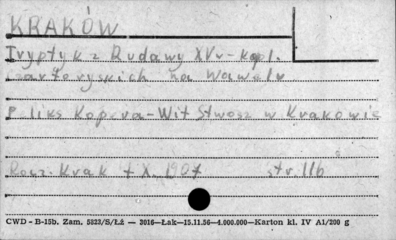 KRAKÓW
Tryptyk z Rudawy XVw-kapl.
Czartoryskich na Wawelu
Feliks Kopera-Wit Stwosz w Krakowie
Rocz. Krak t X. 1907 str. 116
CWD - B-15b. Zam. 5823/S/Łż — 3016—Łak—15.11.56—4.000.000—Karton kl. IV A1/200 g